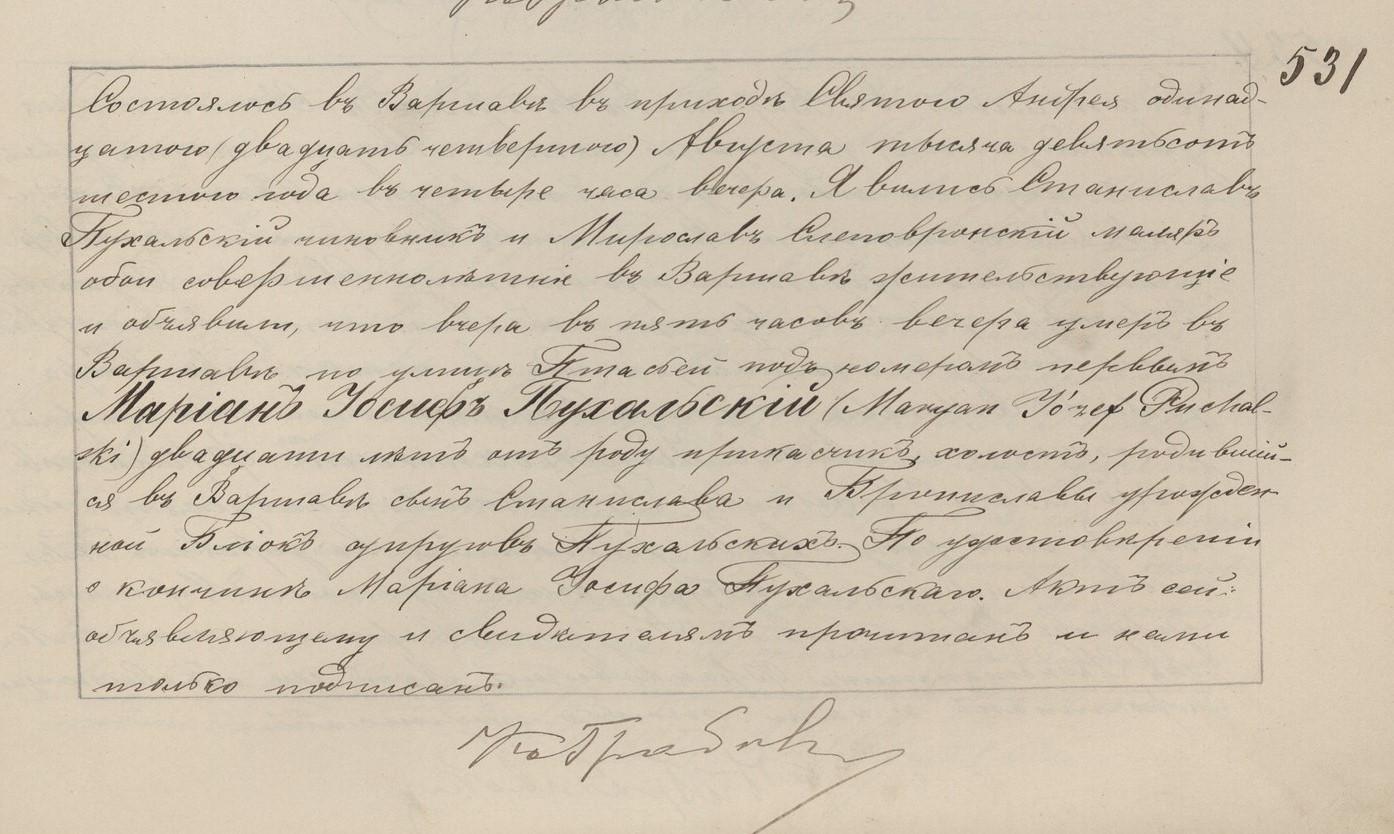 531
Состоялось въ Варшавѣ въ приходѣ Святого Андрея одинад-
цатого (двадцать четвертого) Августа тысяча девятьсотъ
шестого года въ четыре часа вечера. Явились Станиславъ
Пухальскій чиновникъ и Мирославъ Слеповронскій маляръ
обои совершеннолѣтніе въ Варшавѣ жительствующіе
и объявили, что вчера въ пять часовъ вечера умеръ въ
Варшавѣ по улицѣ Птасьей подъ номеромъ первымъ
Маріанъ Іосифъ Пухальскій (Maryan Józef Puchal-
ski) двадцати лѣтъ отъ роду прикасчикъ, холостъ, родившій-
ся въ Варшавѣ сынъ Станислава и Брониславы урожден
ной Бліокъ супруговъ Пухальскихъ. По удостовѣреніи
о кончинѣ Маріана Іосифа Пухальскаго. Актъ сей
объявляющему и свидѣтелямъ прочитанъ и нами
только подписанъ.